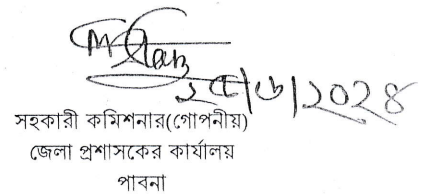 ২৫/৬/২০২৪
সহকারী কমিশনার(গোপনীয়)
জেলা প্রশাসকের কার্যালয়
পাবনা